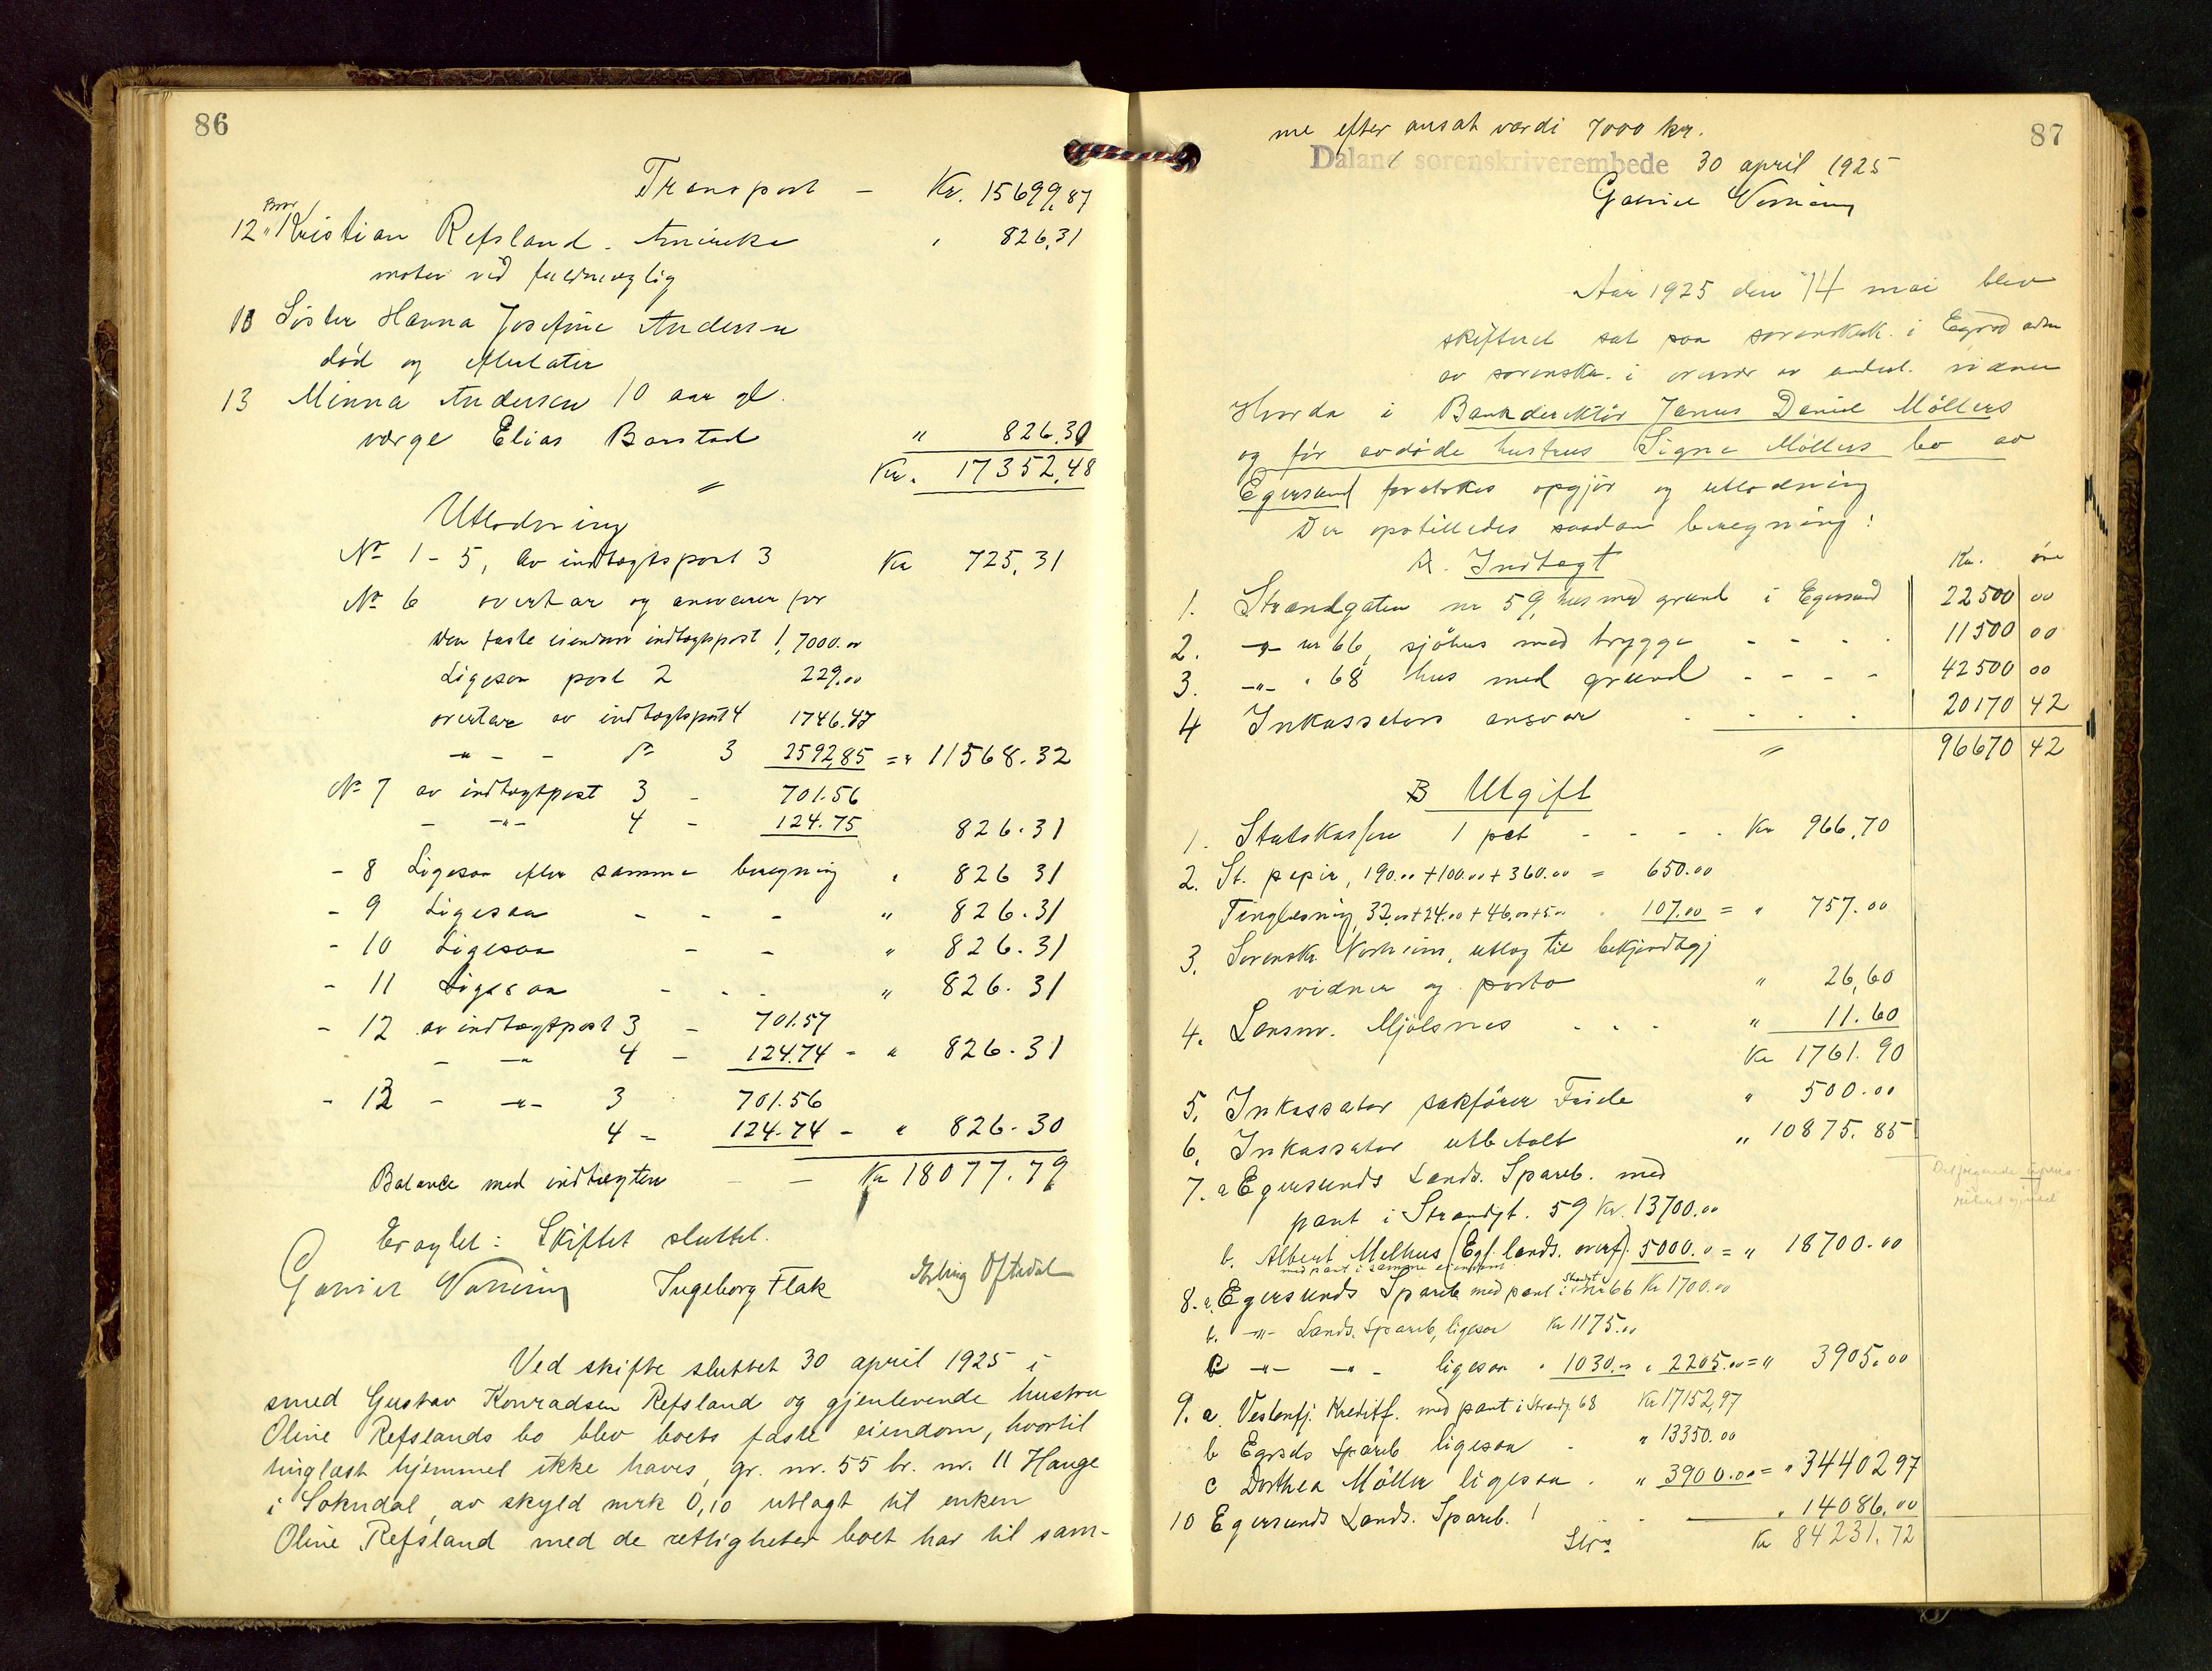 86
Transport - Kr. 15699,87
Bror
12 " Kristian Refsland. Amireka " 826,31
møter ved fuldmægtig
13 Søster Hanna Josefine Andersen
død og efterlater
13 Minna Andersen 10 aar gl.
værge Elias Barstad " 826.30
Kr. 17352,48
Utlodning
No 1-5, av indtægtspost 3 Kr 725,31
No 6 overtar og ansvarer for
den faste eiendom indtægtspost 1, 7000.00
Ligesaa post 2 229,00
overtar av indtægtspost 4 1746.47
-"- - - p 3 2592,85 = " 11568.32
No 7 av indtægtpost 3 - 701.56
- -"- 4 - 124.75 826.31
- 8 Ligesaa efter samme beregning " 826 31
- 9 Ligesaa - - - " 826.31
- 10 Ligesaa - - " 826.31
- 11 Ligesaa - - - " 826.31
- 12 av indtægtpost 3 - 701.57
- -"- 4 - 124.74 - " 826.31
- 13 - -"- 3 701.56
4 - 124.74 - " 826.30
Balance med indtægten - - Kr 18077.79
Oplæst: Skiftet sluttet.
Gabriel Ingeborg Flak Erling Oftedal
Ved skifte sluttet 30 april 1925 i
smed Gustav Konradsen Refsland og gjenlevende hustru
Oline Refslands bo blev boets faste eiendom, hvortil
tinglæst hjemmel ikke haves, gr. nr. 55 br. nr. 11 Hauge
i Sokndal, av skyld mrk 0,10 utlagt til enken
Oline Refsland med de rettigheter boet har til sam-
87
me efter ansat værdi 7000 kr.
Dalane sorenskriverembede 30 april 1925
Gabriel
Aar 1925 den 14 mai blev
skifteret sat paa sorenskrk. i Egrsd
av sorenskr. i overvær av vidner
Hvorda i Bankdirektør Janus Daniel Möllers
og før avdøde hustrus Signe Möllers bo av
Egersund foretokes opgjør og utlodning
Der opstilledes saadan beregning:
A. Indtægt Kr. øre
1. Strandgaten nr 59, hus med grund i Egersund 22500 00
2. -"- nr 66, sjøhus med brygge - - - 11500 00
3. -"- " 68 hus med grund - - - - 42500 00
4 Inkassators ansvar - - - . 20170 42
96670 42
B Utgift
1. Statskassen 1 pct - - - . Kr 966,70
2. St. papir, 190.00 + 100.00 + 360.00 = 650.00
Tinglæsning, 32,00 + 24.00 + 46,00 + 5.00 " 107.00 = " 757.00
3. Sorenskr. utlæg til bekjendtgj
vidner og porto " 26,60
4. Lensm. Mjölsnes - - - " 11.60
Kr 1761.90
5. Inkassator sakfører Feide " 500.00
6. Inkassator utbetalt " 10875.85
7. a Egersunds Lands. Spareb. med
pant i Strandgt. 59 Kr. 13700.00
b. Albert Melhus (Egs. lands. overf). 5000.00 = " 18700.00
med pant i samme eiendom
8. a. Egersunds Spareb. med pant i Strandgt nr 66 Kr 1700.00
b. -"- Lands. Spareb, ligesaa Kr 1175.00
c -"- -"- ligesaa " 1030.00 " 2205.00 = " 3905,00
9. a. Vestenfj. Kreditf. med pant i Strandg. 68 Kr 17152,97
b Egrsds Spareb ligesaa - " 13350.00
c Dorthea Möller ligesaa . " 3900.00 = " 34402 97
10 Egersunds Lands. Spareb. ! " 14086.00
Kr 84231.72